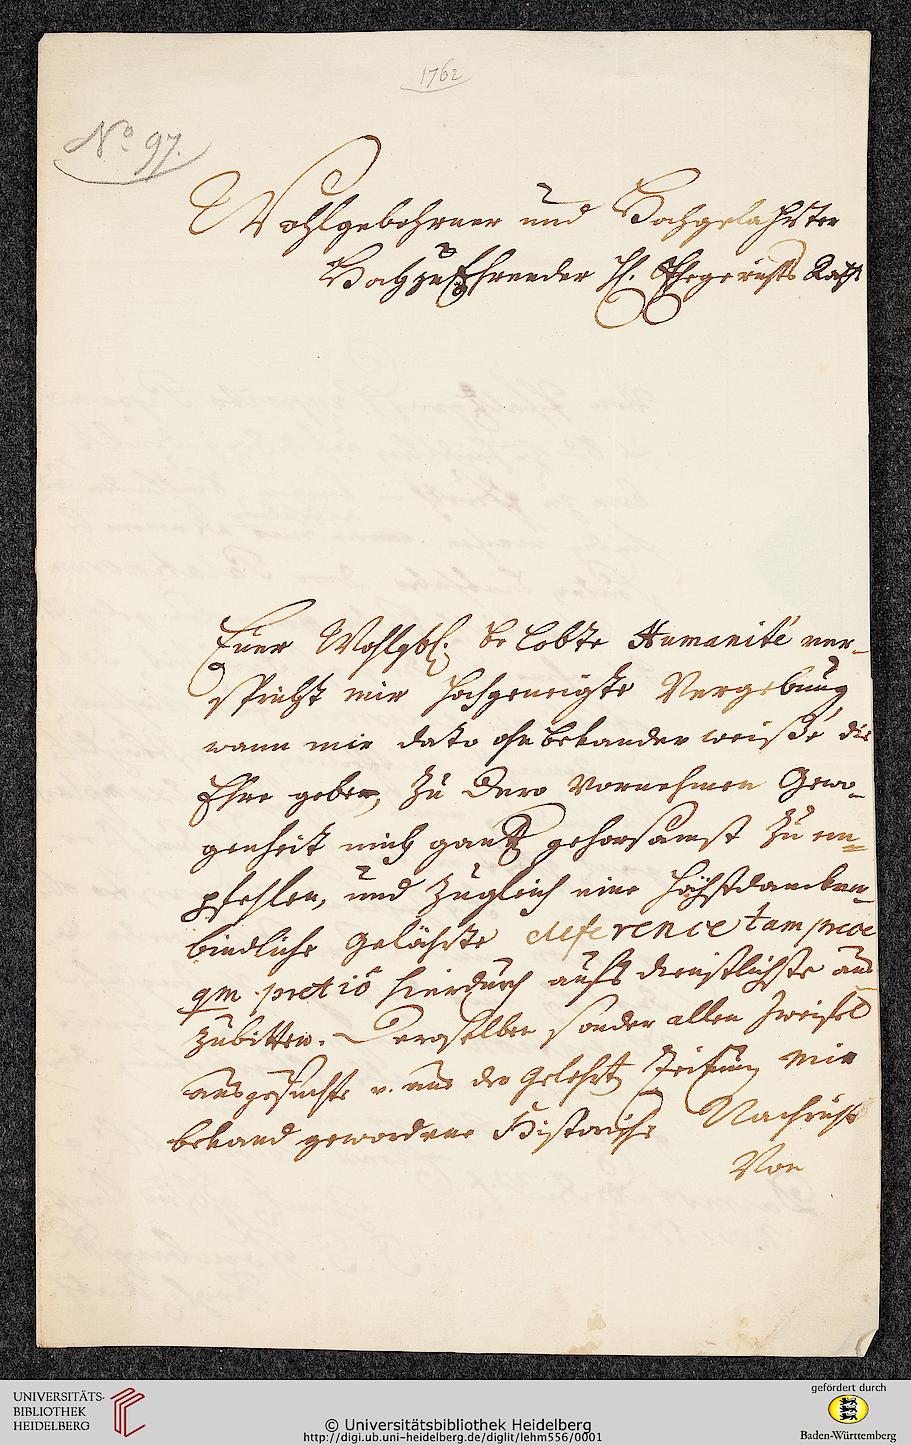 1762
No 97.
Wohlgebohrner und Hochgelahrter
HochzuEhrender H. Ehegerichts Rath
Euer Wohlgbh. belobte Humanité ver-
spricht mir hochgeneigte Vergebung
wann mir dato ohnbekanderweiße die
Ehre geben, zu Dero vornehmen Gewo-
genheit mich gantz gehorsamst zu em-
pfehlen, und zugleich eine höchstdanckver-
bindliche deference tam
qm hierdurch aufs dienstlichste aus
zubitten. Deroselben sonder allen Zweifel
ausgesuchte v. aus der gelehrt Zeitung mir
bekand gewordene Historische Nachricht
Von
UNIVERSITÄTS-
BIBLIOTHEK
HEIDELBERG
© Universitätsbibliothek Heidelberg
http://digi.ub.uni-heidelberg.de/diglit/lehm556/0001
gefördert durch
Baden-Württemberg